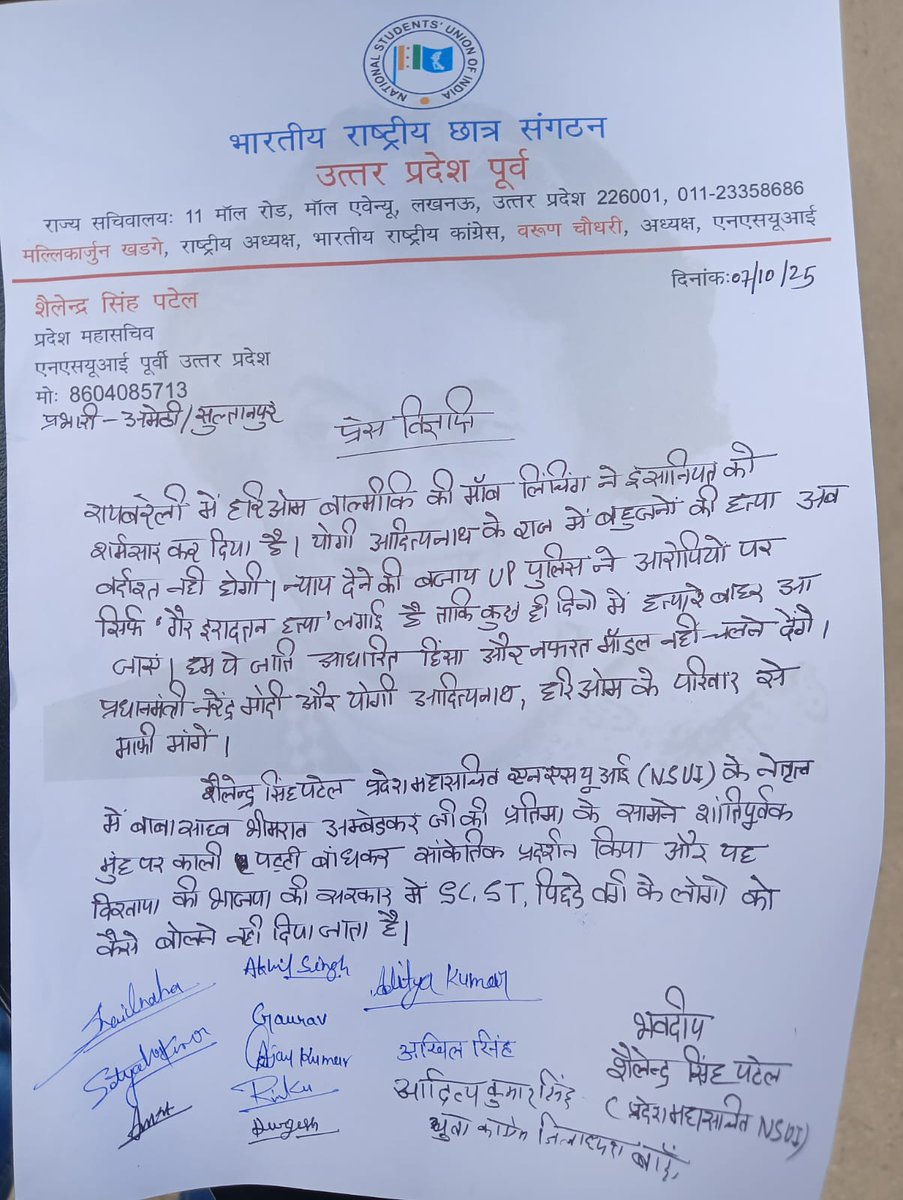 NATIONAL STUDENTS' UNION OF INDIA
भारतीय राष्ट्रीय छात्र संगठन
उत्तर प्रदेश पूर्व
राज्य सचिवालय: 11 मॉल रोड, मॉल एवेन्यू, लखनऊ, उत्तर प्रदेश 226001, 011-23358686
मल्लिकार्जुन खडगे, राष्ट्रीय अध्यक्ष, भारतीय राष्ट्रीय कांग्रेस, वरूण चौधरी, अध्यक्ष, एनएसयूआई
दिनांक: 07/10/25
शैलेन्द्र सिंह पटेल
प्रदेश महासचिव
एनएसयूआई पूर्वी उत्तर प्रदेश
मो: 8604085713
प्रभारी - अमेठी/सुल्तानपुर
प्रेस विज्ञप्ति
रायबरेली में हरिओम बाल्मीकि की मॉब लिंचिंग ने इंसानियत को
शर्मसार कर दिया है। योगी आदित्यनाथ के राज में बहुजनों की हत्या अब
बर्दाश्त नही होगी। न्याय देने की बजाय UP पुलिस ने आरोपियों पर
सिर्फ 'गैर इरादतन हत्या' लगाई है ताकि कुछ ही दिनो में हत्यारे बाहर आ
जाएं। हम ये जाति आधारित हिंसा और नफरत मॉडल नही चलने देंगे।
प्रधानमंत्री नरेंद्र मोदी और योगी आदित्यनाथ, हरिओम के परिवार से
माफी मांगें।
शैलेन्द्र सिंह पटेल प्रदेश महासचिव एनएसयूआई (NSUI) के नेतृत्व
में बाबा साहब भीमराव अम्बेडकर जी की प्रतिमा के सामने शांतिपूर्वक
मुंह पर काली पट्टी बांधकर सांकेतिक प्रदर्शन किया और यह
की भाजपा की सरकार में SC, ST, वर्ग के लोगो को
कैसे बोलने नही दिया जाता है।
Singh
Aditya Kumar
Gaurav
Ajay Kumar
Rinku
Durgesh
अखिल सिंह
आदित्य कुमार सिंह
युवा
भवदीय
शैलेन्द्र सिंह पटेल
(प्रदेश महासचिव NSUI)